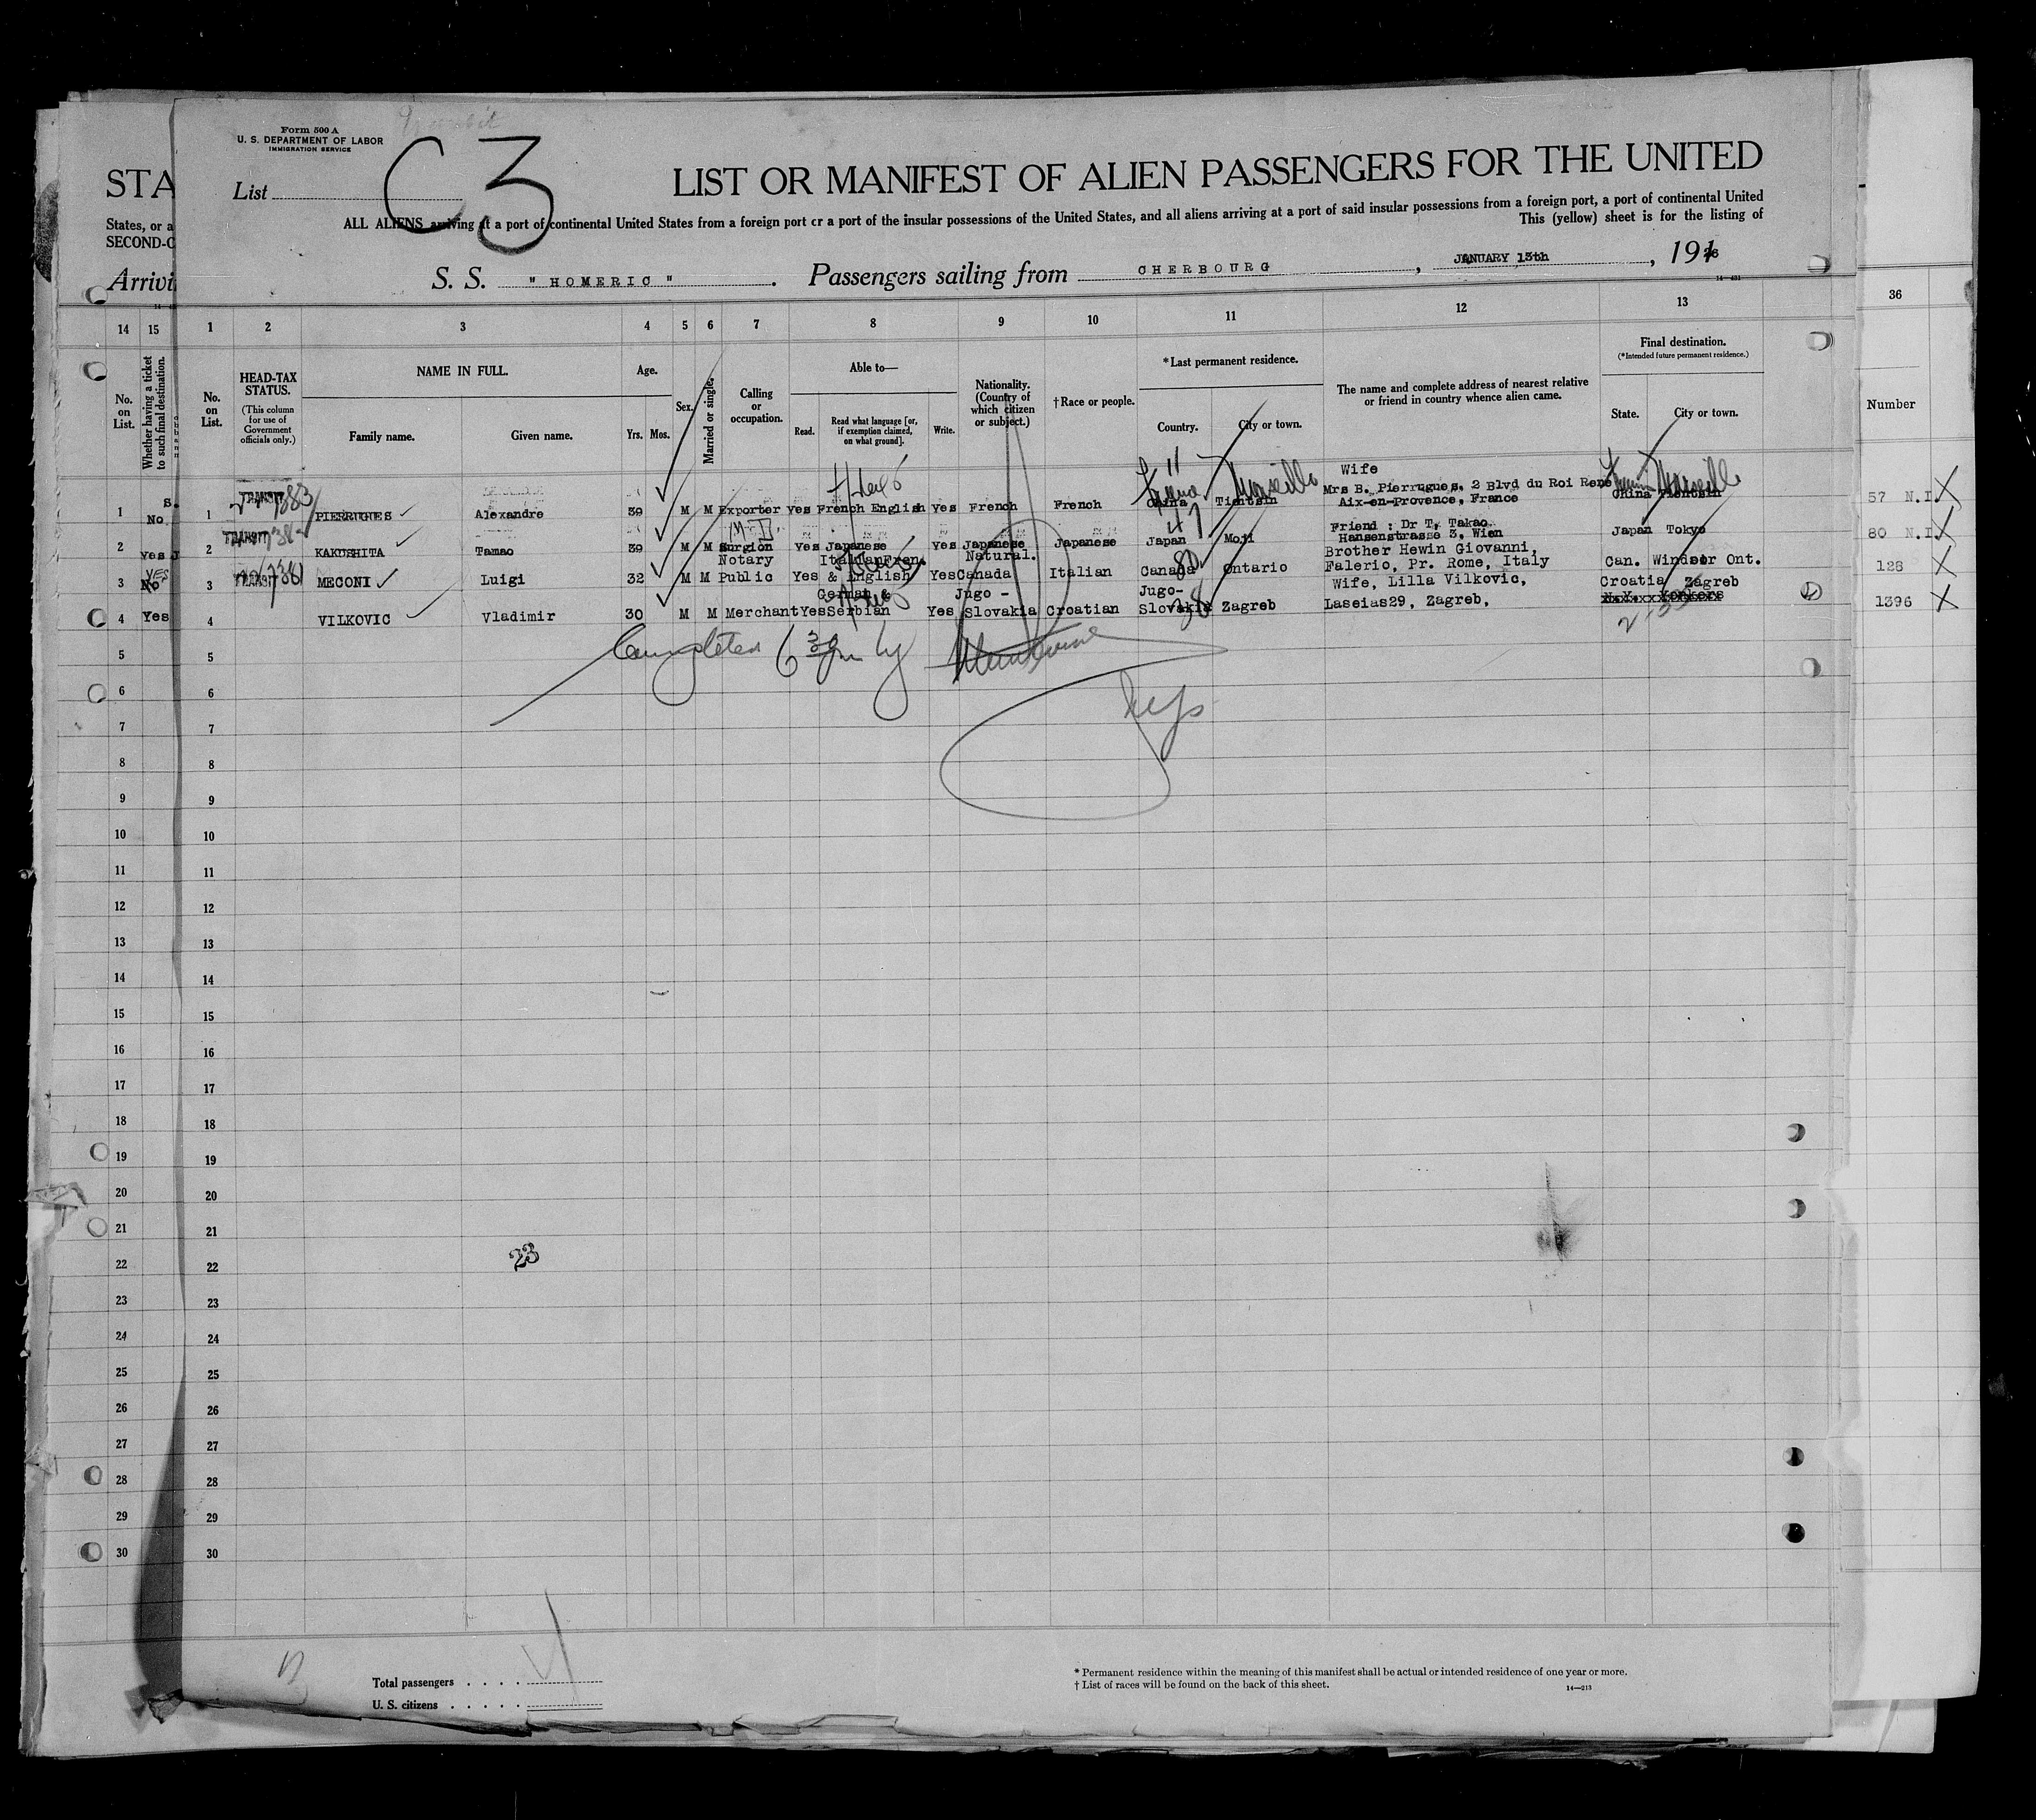 Form 500 A
U. S. DEPARTMENT OF LABOR
IMMIGRATION SERVICE
C3
STA
LIST OR MANIFEST OF ALIEN PASSENGERS FOR THE UNITED
List
States, or a
SECOND-C
ALL ALIENS arriving at a port of continental United States from a foreign port or a port of the insular possessions of the United States, and all aliens arriving at a port of said insular possessions from a foreign port, a port of continental United
This (yellow) sheet is for the listing of
Arrivi
S. S. " HOMERIC " . Passengers sailing from CHERBOURG , JANUARY 13th , 19
14 15 1 2 3 4 5 6 7 8 9 10 11 12 13 36
No. on List.
Whether having a ticket to such final destination.
No. on List.
HEAD-TAX STATUS.
(This column for use of Government officials only.)
NAME IN FULL.
Family name. Given name.
Age.
Yrs. Mos.
Sex.
Married or single.
Calling or occupation.
Able to—
Read. Read what language [or, if exemption claimed, on what ground]. Write.
Nationality. (Country of which citizen or subject.)
†Race or people.
*Last permanent residence.
Country. City or town.
The name and complete address of nearest relative or friend in country whence alien came.
Final destination.
(*Intended future permanent residence.)
State. City or town.
Number
Wife
Mrs B. Pierrugues, 2 Blvd du Roi Rene
1 No 1 TRANSIT PIERRUGUES Alexandre 39 M M Exporter yes French English Yes French French China Tientsin Aix-en-Provence, France China Tientsin 57 N.I.
Marseille Marseille
Friend : Dr T. Takao
2 Yes 2 TRANSIT KAKUSHITA Tamao 39 M M Surgion Yes Japanese Yes Japanese Japanese Japan Moji Hansenstrasse 3, Wien Japan Tokyo 80 N.I.
Notary Italian Fren. Natural. Brother Hewin Giovanni,
3 YES No 3 TRANSIT MECONI Luigi 32 M M Public Yes & English Yes Canada Italian Canada Ontario Falerio, Pr. Rome, Italy Can. Windsor Ont. 128
German & Jugo - Jugo- Wife, Lilla Vilkovic, Croatia Zagreb
4 Yes 4 VILKOVIC Vladimir 30 M M Merchant Yes Serbian Yes Slovakia Croatian Slovakia Zagreb Laseias29, Zagreb, N.Y. Yonkers 1396
Completed 6 30 pm by
5 5
6 6
7 7
8 8
9 9
10 10
11 11
12 12
13 13
14 14
15 15
16 16
17 17
18 18
19 19
20 20
21 21
22 22
23
23 23
24 24
25 25
26 26
27 27
28 28
29 29
30 30
Total passengers . . . .
U. S. citizens . . . . .
* Permanent residence within the meaning of this manifest shall be actual or intended residence of one year or more.
† List of races will be found on the back of this sheet.
14—213